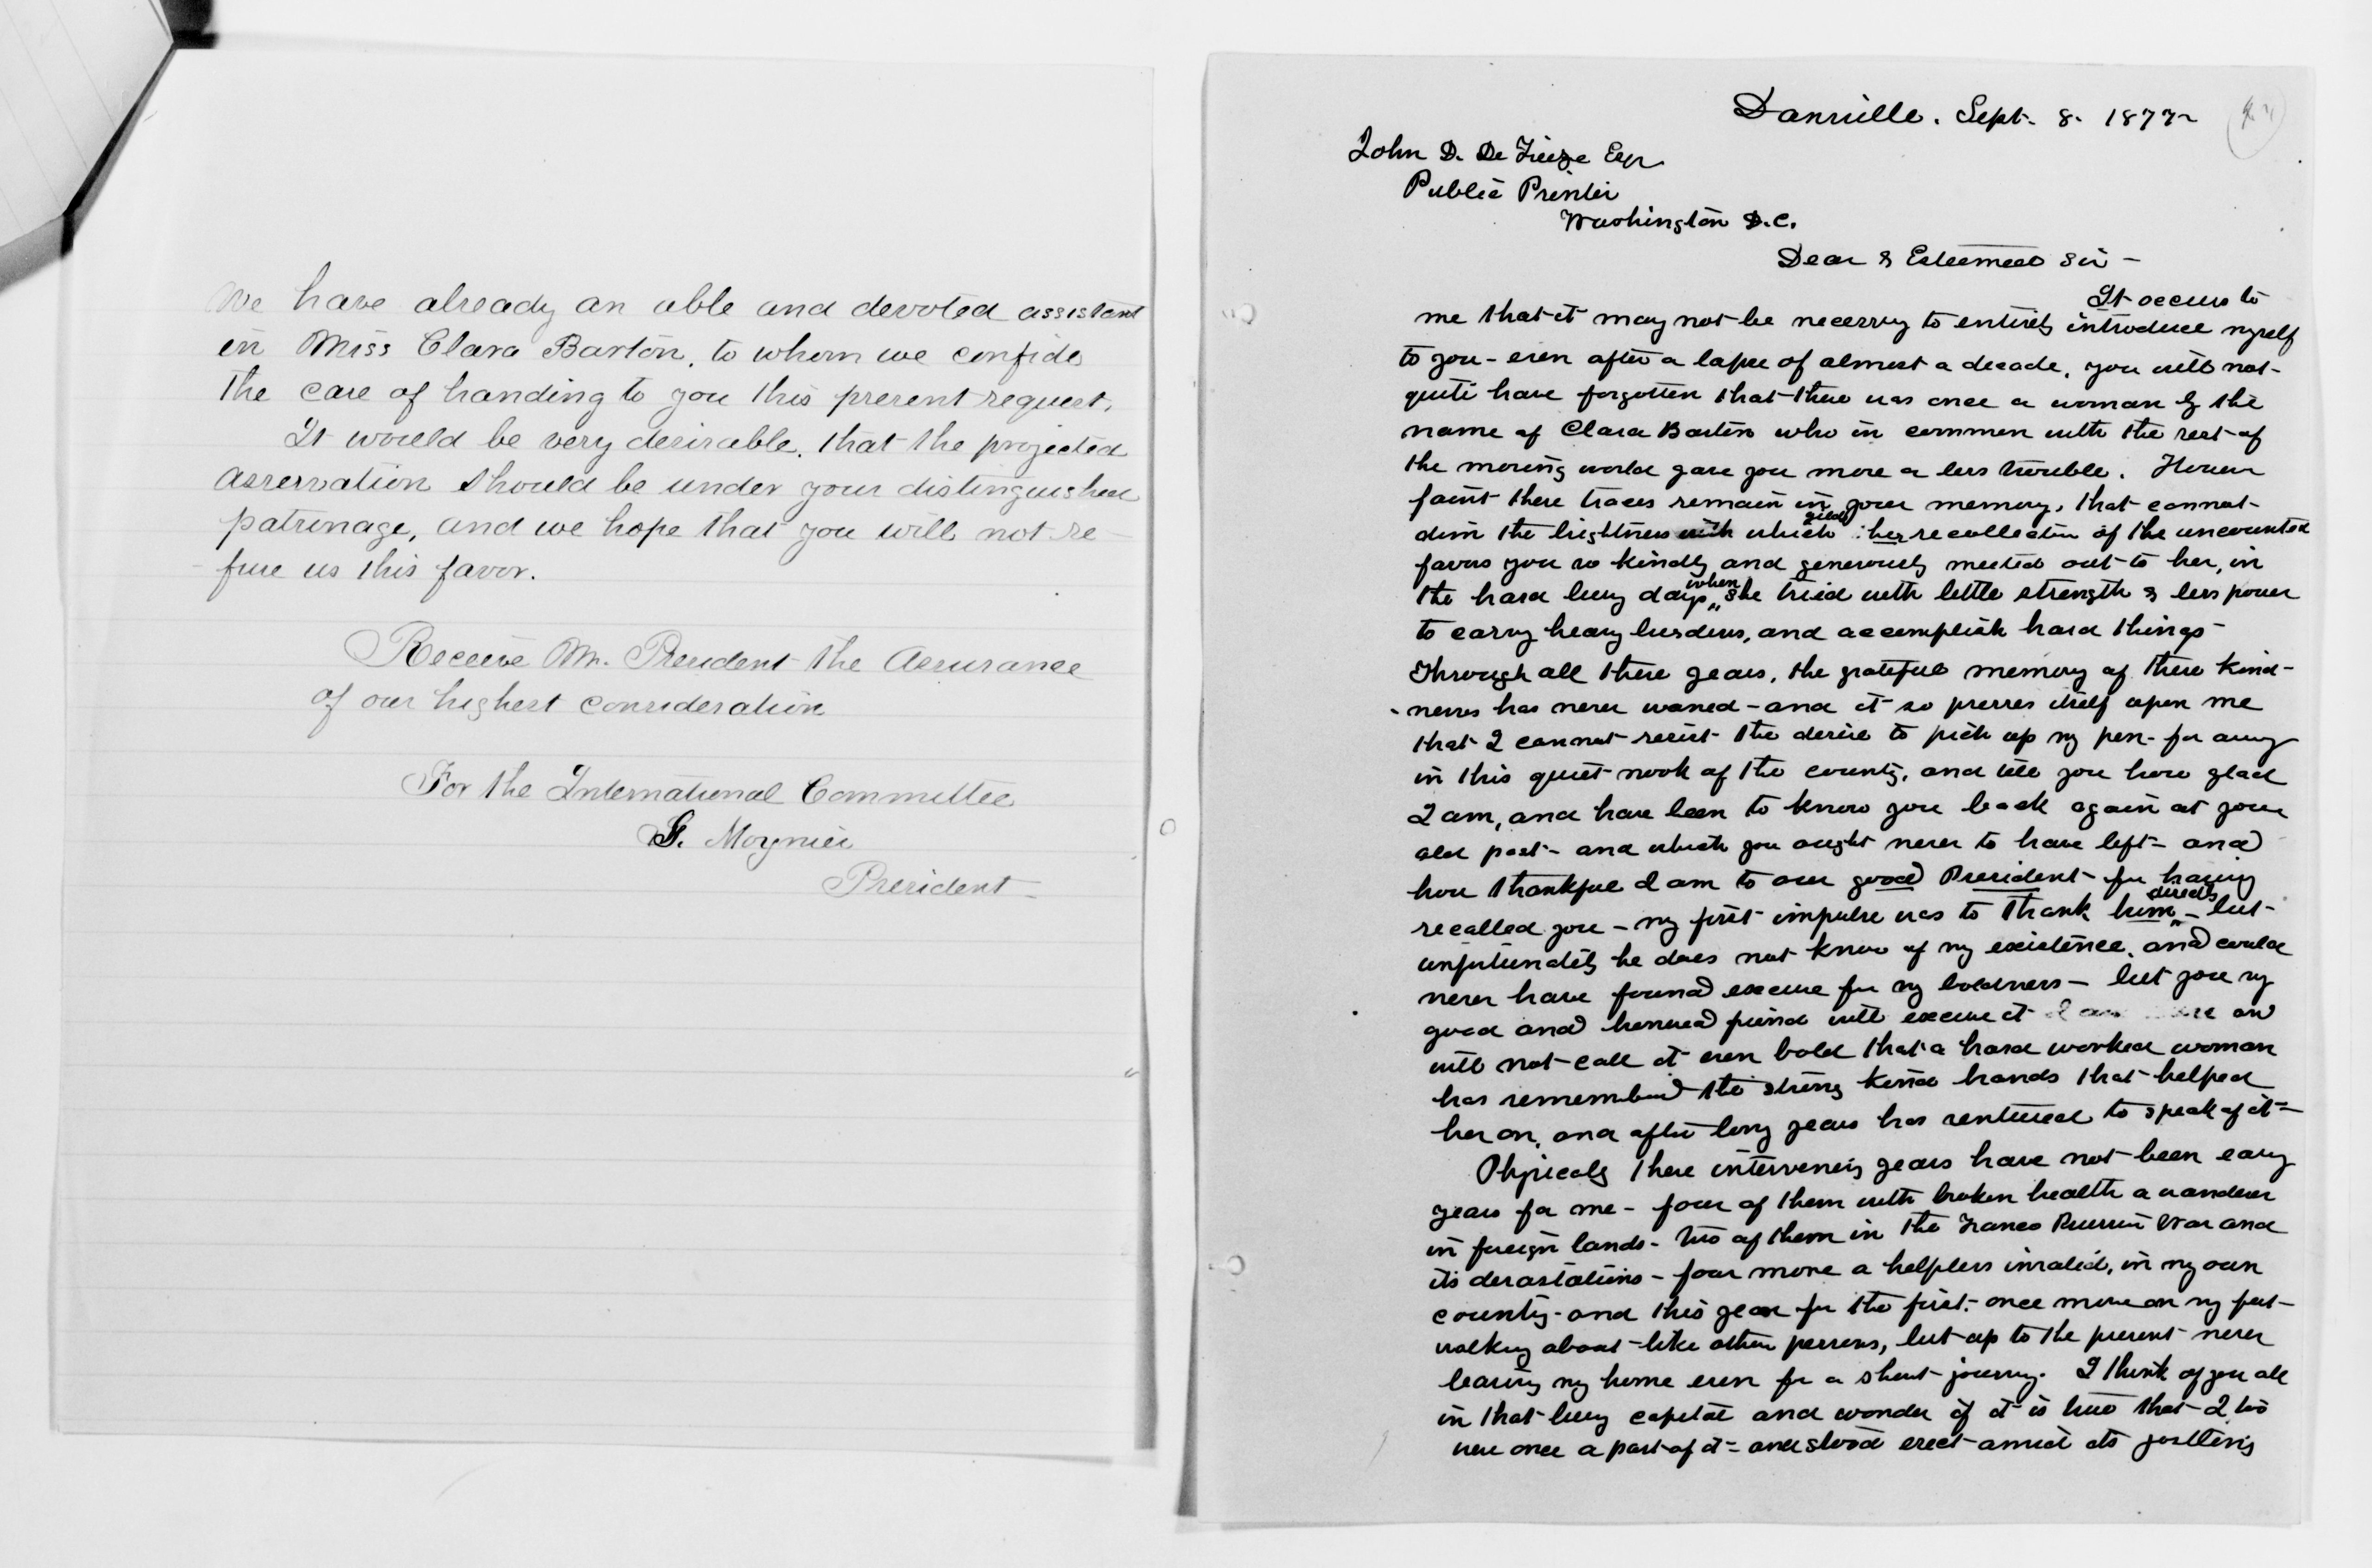 We have already an able and devoted assistant
in Miss Clara Barton, to whom we confide
the care of handing to you this present request.
It would be very desirable, that the projected
Asservation should be under your distinguished
patrinage, and we hope that you will not re-
fuse us this favor.
Receive Mr. President the Assurance
of our highest consideration
For the International Committee
G. Moynier
President
Danville. Sept. 8. 1877
John D. De Frieze Esqr
Public Printer
Washington D.C.
Dear & Esteemed Sir -
It occurs to
me that it may not be necessary to entirely introduce myself
to you - even after a lapse of almost a decade, you will not
quite have forgotten that there was once a woman by the
name of Clara Barton who in common with the rest of
the moving world gave you more or less trouble. However
faint these traces remain in your memory, that cannot
dim the brightness with which gilds her recollection of the uncounted
favors you so kindly and generously meeted out to her, in
the hard busy days when she tried with little strength & less power
to carry heavy burdens, and accomplish hard things -
Through all these years, the grateful memory of these kind-
-ness has never waned - and it so presses itself upon me
that I cannot resist the desire to pick up my pen - far away
in this quiet nook of the country, and tell you how glad
I am, and have been to know you back again at your
old post - and which you ought never to have left - and
how thankful I am to our good President - for having
recalled you - my first impulse was to thank him directly - but -
unfortunately he does not know of my existence, and could
never have found excuse for my boldness - but you my
good and honored friend will excuse it and
will not call it even bold that a hard worked woman
has remembered the strong kind hands that helped
her on, and after long years has ventured to speak of it =
Physically these intervening years have not been easy
years for me - four of them with broken health a wanderer
in foreign lands - two of them in the Franco Prussian War and
its devastations - four more a helpless invalid, in my own
country - and this year for the first - once more on my feet -
walking about like other persons, but up to the present never
leaving my home even for a short journey. I think of you all
in that busy capital and wonder if it is true that I too
was once a part of it = and stood erect amid its jostling